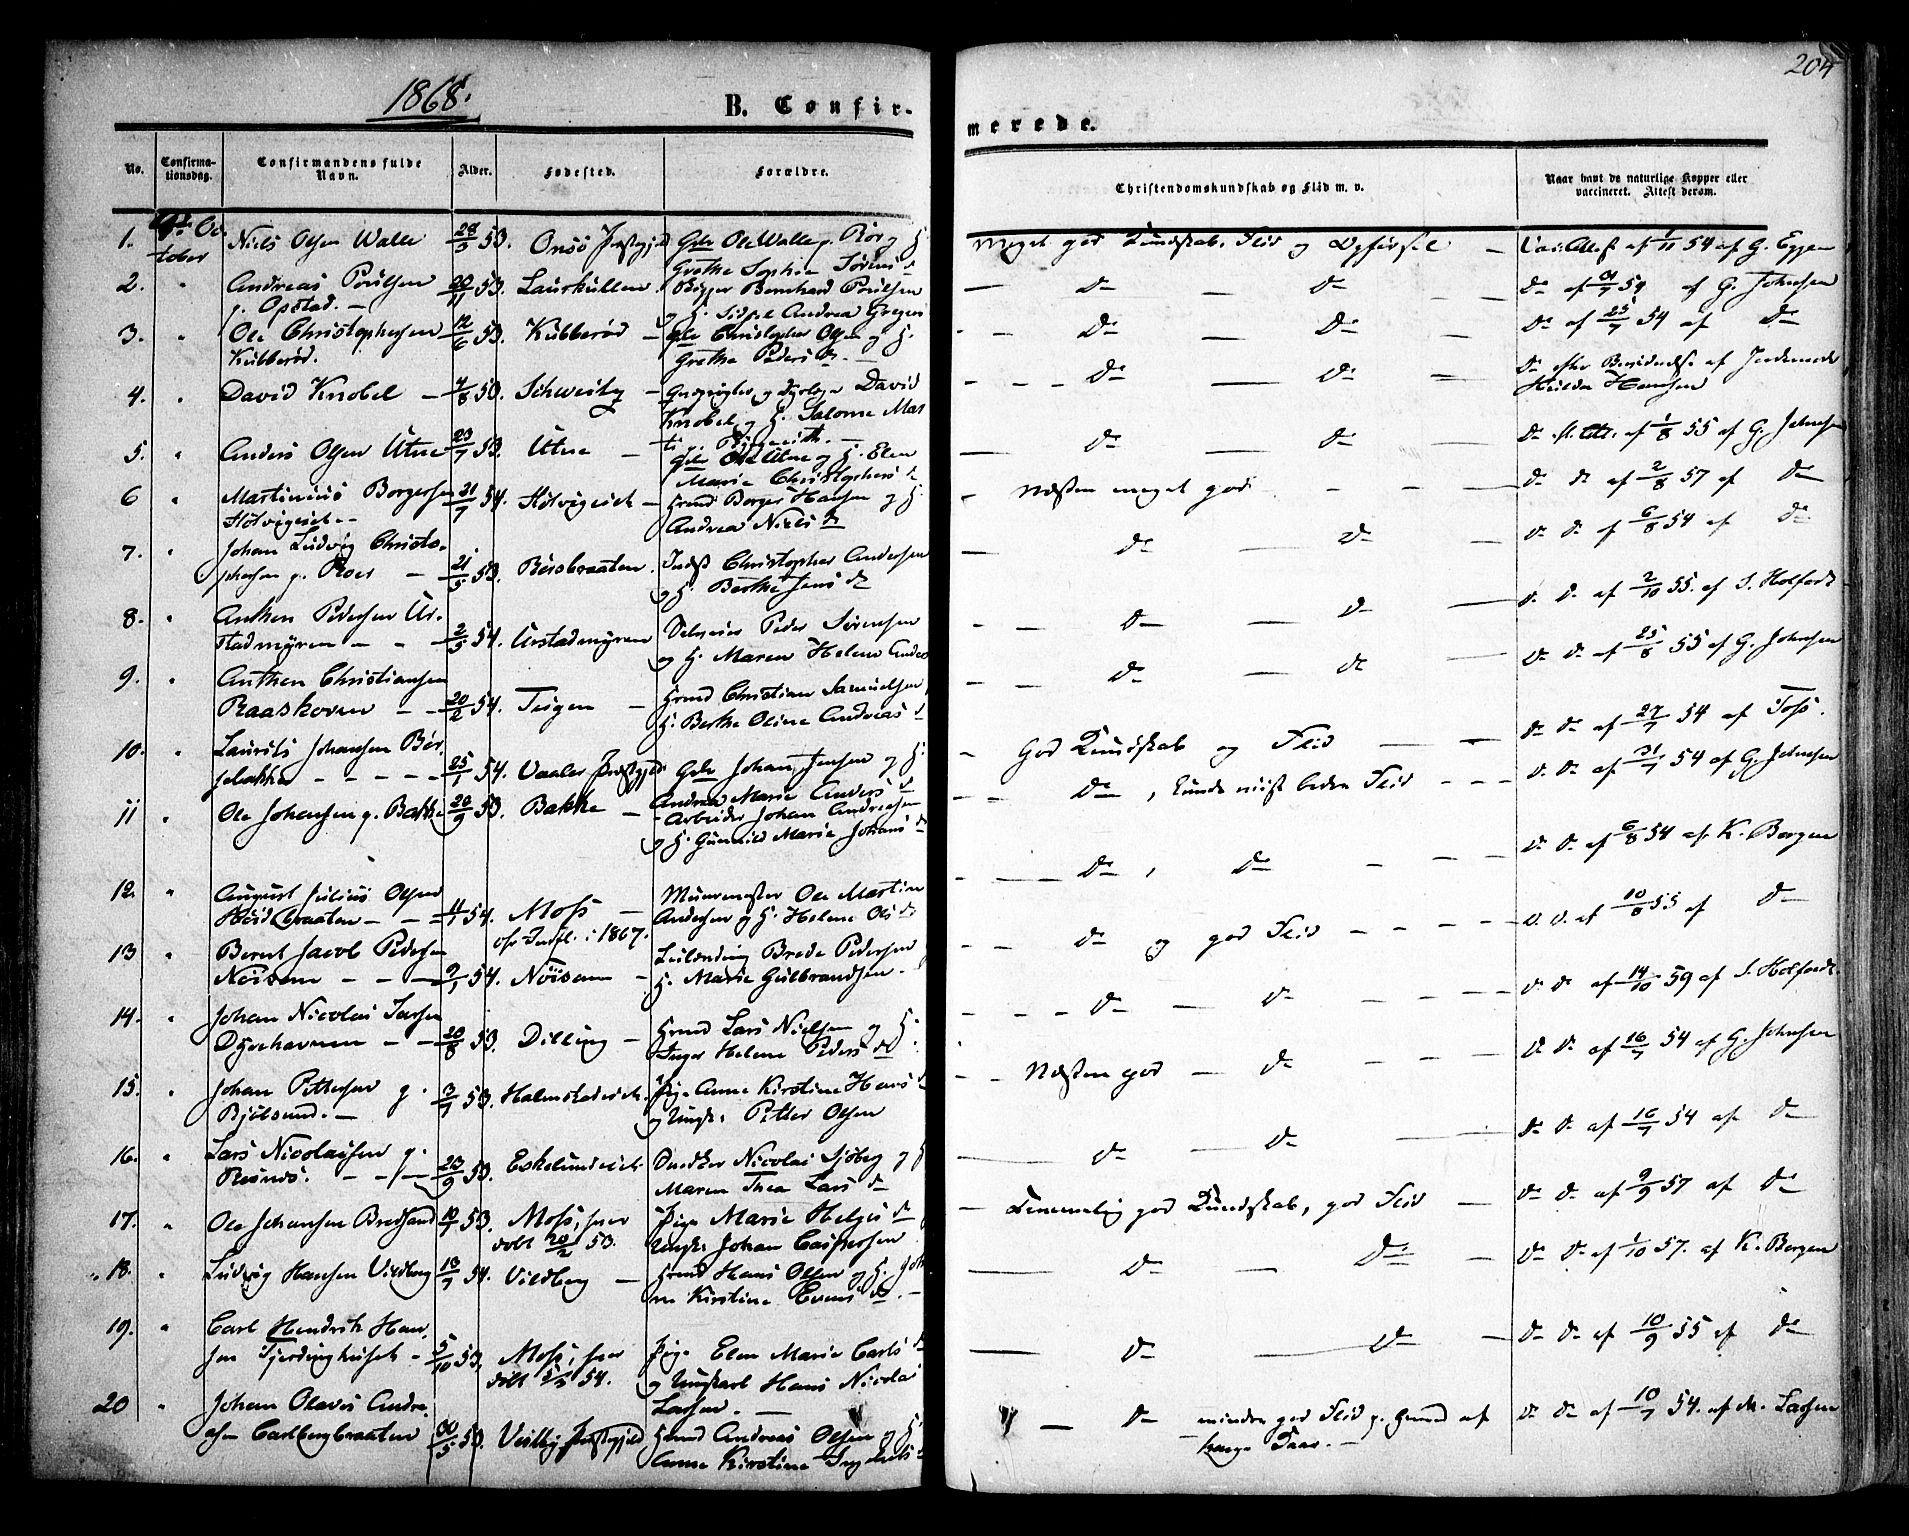 1868.
204
B. Confir-
merede.
No.
Confirma-
tionsdag.
Confirmandens fulde
Navn.
Alder.
Fødested.
Forældre.
Christendomskundskab og Flid m. v.
Naar havt de naturlige Kopper eller
vaccineret. Attest derom.
1. Oc
tober Niels Olsen Walle 28/5 53. Onsö Præstegjeld Gdr Ole Walle p. Rör og H.
Grethe Sophie Sörens D
Meget god Kundskab, Flid og Opførsel Vac. Attest af 1/11 54 af G. Eggen
2. " Andreas Poulsen 20/11 53. Laurkullen Bernhard Poulsen
p. Opstad. og H. Sidsel Andrea Gregers
Do Do Do af 54 af G. Johnsen
3. " Ole Christophersen 12/6 53. Kubberød Gdr Christopher Olsen og H.
Kubberød. Grethe Peders D
Do Do Do af 25/7 54 af Do
4. " David Knobel 4/8 50. Schweitz David
Knobel og H. Salome
Do Do Do efter af Jordemoder
Hulda Hansen
5. " Anders Olsen Utne 23/7 53. Utne Gdr Ole Utne og H. Elen
Marie Christophers D
Do Do Do af 1/8 55 af G. Johnsen
6 " Martinius Borgersen 21/7 54. Hölvigeiet Grmd Borger Hansen og H.
Hölvigeiet Andrea Niels D
Næsten meget god Do Do af 2/8 57 af Do
7. " Johan Ludvig Christo-
phersen p. Roer 21/5 53. Rörsbraaten. Indst Christopher Andersen
og H. Berthe Jens D
Do Do Do Do af 6/8 54 af Do
8. " Anthon Pedersen Ur-
stadmyren 2/5 54. Urstadmyren Selveier Peder Sörensen
og H. Maren Helene Anders
Do Do Do Do af 2/10 55. af S. Holfordt
9. " Anthon Christiansen
Raaskoven 20/2 54. Teigen Grmd Christian Samuelsen,
H. Berthe Oline Andreas D
Do Do Do Do af 25/8 55 af G. Johnsen
10. " Laurits Johansen
25/1 54. Vaaler Præstegjeld Gdr Johan Jensen og H.
Andrea Marie Anders D
God Kundskab og Flid Do Do af 27/7 54 af Foss.
11 " Ole Johansen p. Bakke 20/9 53. Bakke Arbeider Johan Andreasen
og H. Gunnild Marie Johans D
Do, kunde viist bedre Flid Do Do af 31/7 54 af G. Johnsen
12. " August Julius Olsen
11/1 54. Moss Muurmester Ole Martin
Andersen og H. Helene Ols D
i 1867.
Do, Do Do Do af 6/8 54 af K. Borgen
13 " Bernt Jacob Pedersen
Nöisom 9/1 54. Nöisom Leilænding Brede Pedersen
H. Marie Gulbrandsen.
Do og god Flid Do Do af 10/8 55 af Do
14. " Johan Nicolai Larsen
Dyrehavnen 20/8 53. Dilling Grmd Lars Nielsen og H.
Inger Helene Peders D
Do Do Do Do af 14/10 59 af S. Holfordt
15. " Johan Pettersen p.
Bjölsund. 3/7 53. Halmstadeiet. Pige Anne Kirstine Hans D
og Ungk. Petter Olsen
Næsten god Do Do Do af 16/7 54 af G. Johnsen
16. " Lars Nicolaisen p.
Reünes. 23/9 53. Eskelundeiet Snedker Nicolai Sjöberg og H
Maren Thea Lars D
Do Do Do Do af 16/7 54 af Do
17. " Ole Johansen Bredsand 19/1 53. Moss, hver
döbt 20/2 53. Pige Marie Helges D
Ungk. Johan Caspersen
Temmelig god Kundskab, god Flid Do Do af 9/9 57 af Do
18. " Ludvig Hansen Vildberg 13/1 54. Vildberg Grmd Hans Olsen og H. Joh
ne Kirstine Evens D
Do Do Do Do af 1/10 57. af K. Borgen
19. " Carl Hendrik Han-
sen Tjerdinghuset 5/10 53. Moss, hver
döbt 54. Pige Elen Marie Carls D
og Ungkarl Hans Nicolai
Larsen.
Do Do Do Do af 10/9 55 af Do
20 " Johan Olaves Andre-
asen Carlbergbraaten 30/5 53. Vestby Præstegjeld Grmd Andreas Olsen og H
Anne Kirstine
Do mindre god Flid p. Grund af
Do Do af 10/7 54. af M. Larsen